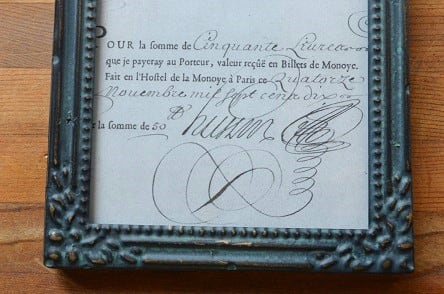 POUR la somme de Cinquante Livres
que je payeray au Porteur, valeur reçûë en Billets de Monoye.
Fait en l'Hostel de la Monoye à Paris ce Quatorze
Novembre mil sept cens dix
la somme de 50